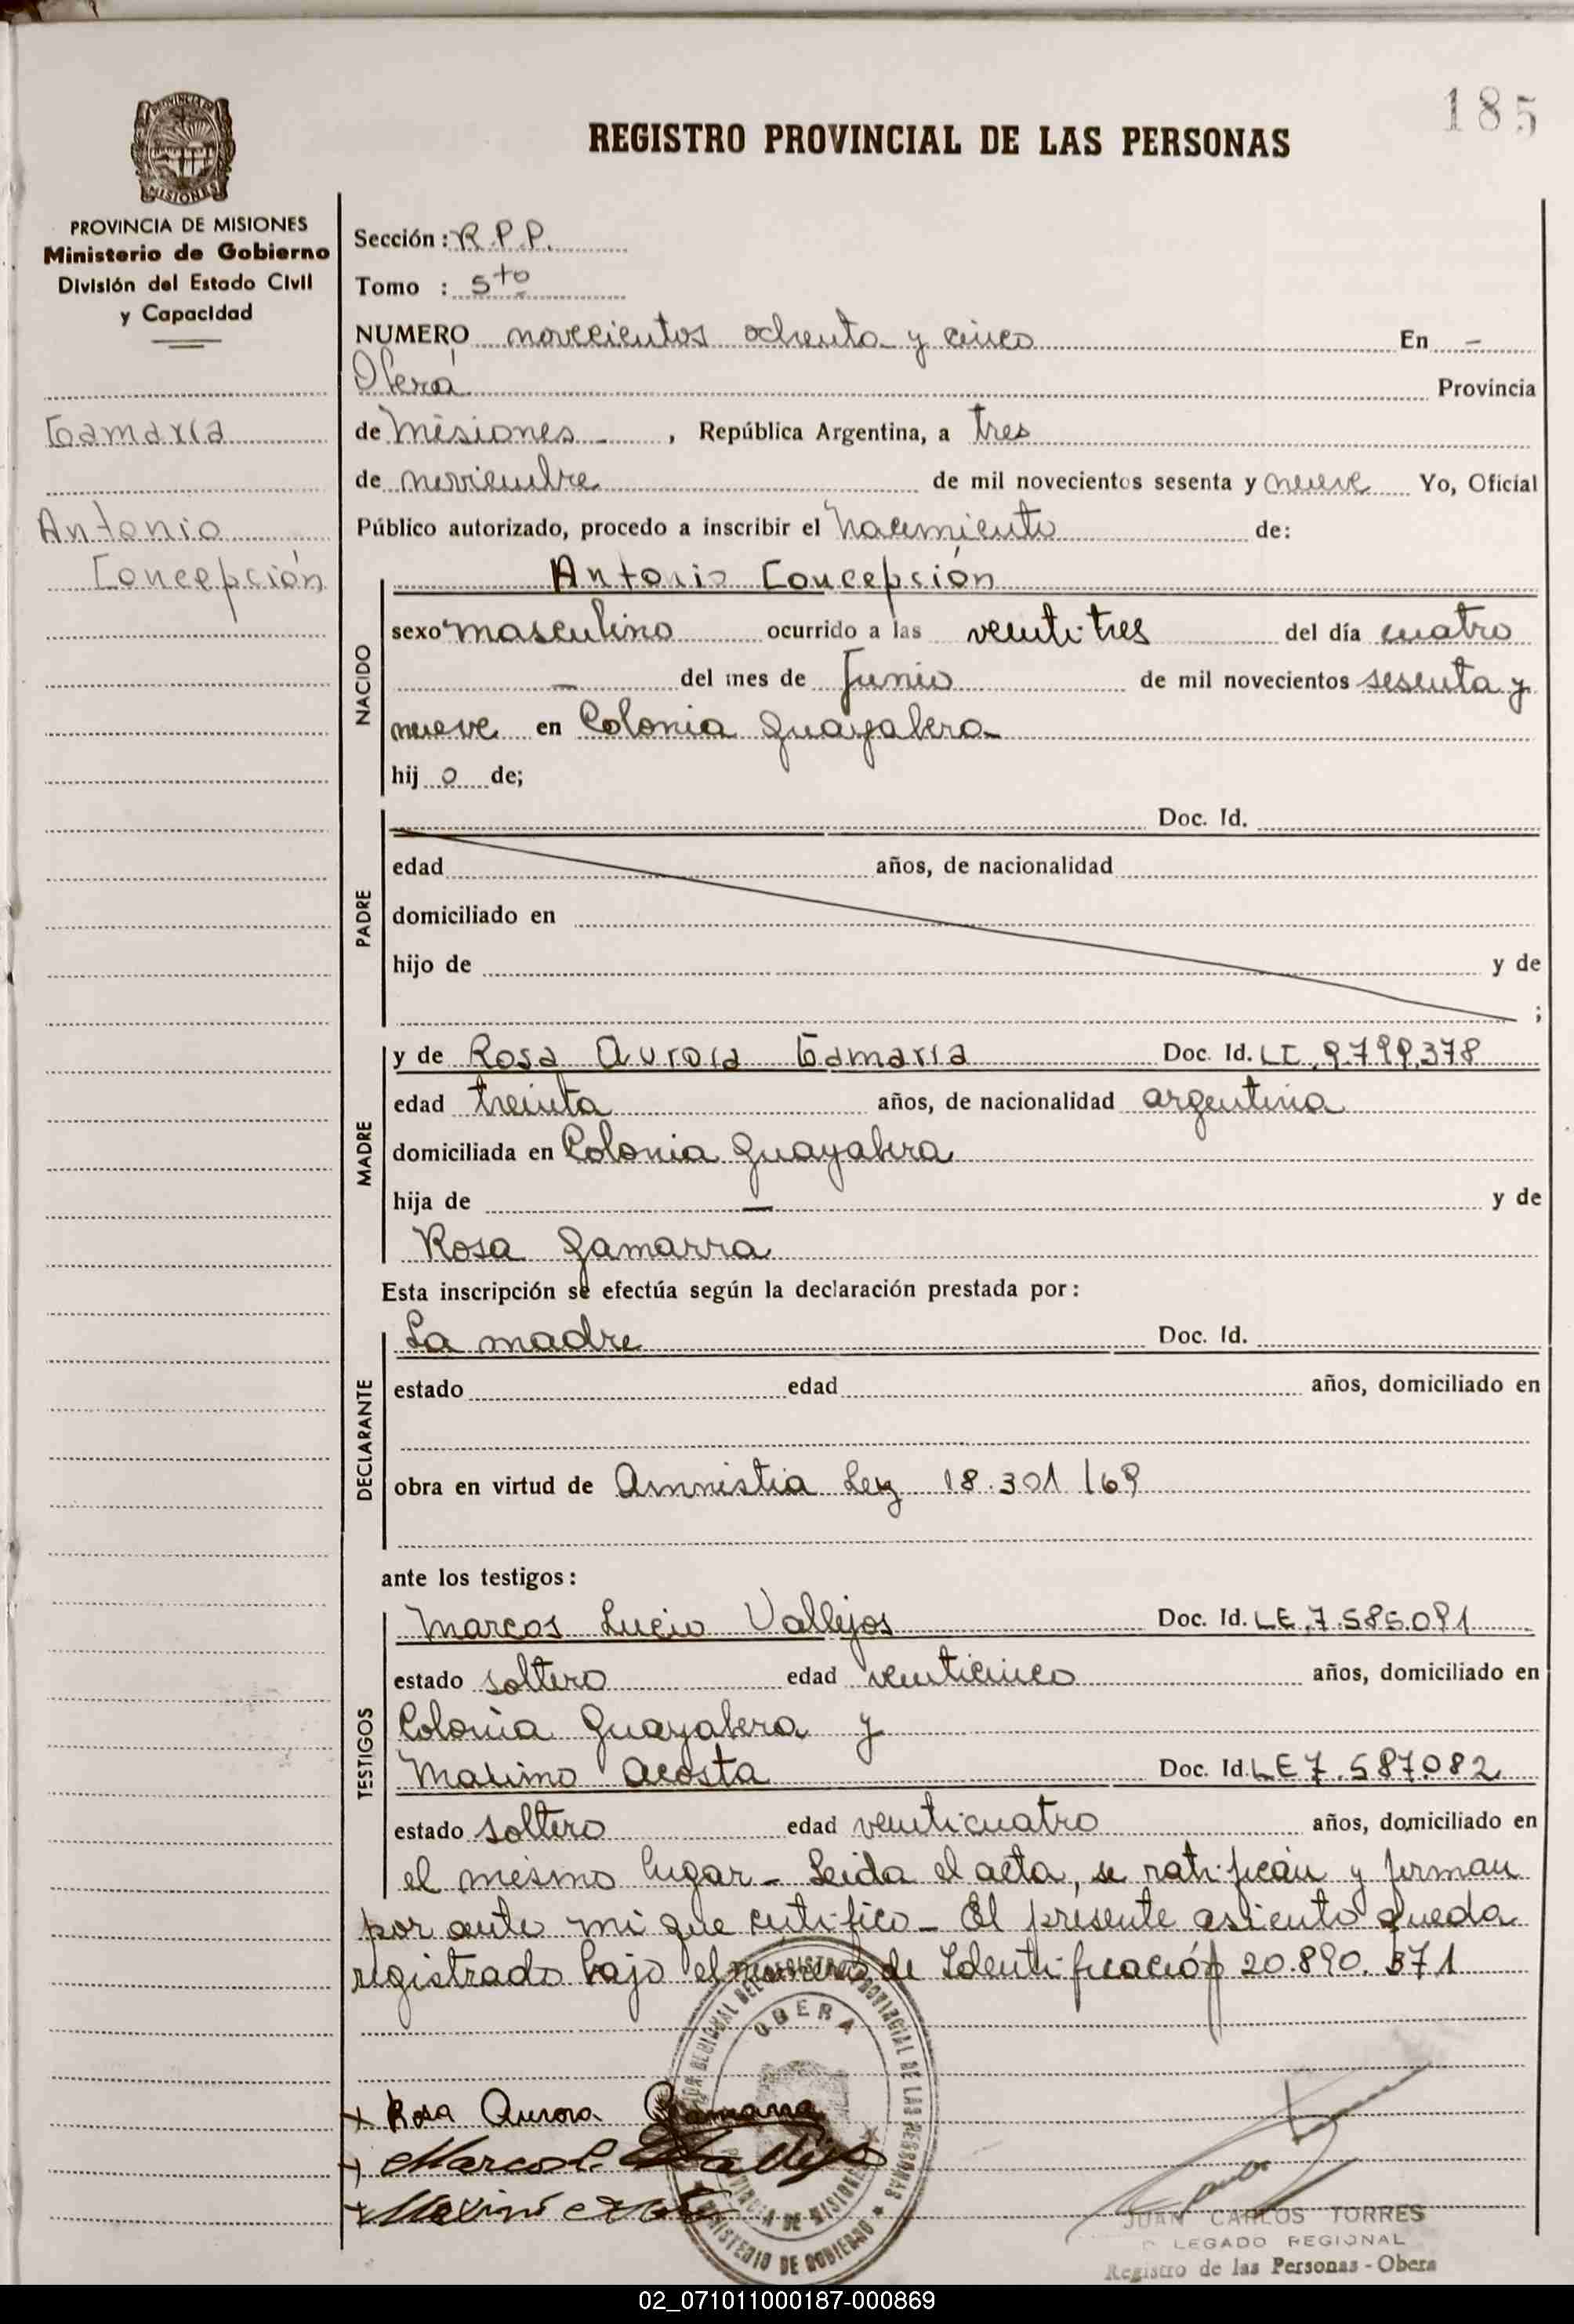 185
REGISTRO PROVINCIAL DE LAS PERSONAS
PROVINCIA DE MISIONES
Ministerio de Gobierno
División del Estado Civil
y Capacidad
Gamarra
Antonio
Concepción
Sección: R.P.P.
Tomo : 5to
NUMERO novecientos ochenta y cinco En -
Oberá Provincia
de Misiones - , República Argentina, a tres
de noviembre de mil novecientos sesenta y nueve Yo, Oficial
Público autorizado, procedo a inscribir el nacimiento de:
NACIDO
Antonio Concepción
sexo masculino ocurrido a las ventitres del día cuatro
- del mes de Junio de mil novecientos sesenta y
nueve en Colonia Guayabera -
hij o de;
PADRE
Doc. Id.
edad años, de nacionalidad
domiciliado en
hijo de y de
;
MADRE
y de Rosa Aurora Gamarra Doc. Id. LC 9.799.378
edad treinta años, de nacionalidad argentina
domiciliada en Colonia Guayabera
hija de - y de
Rosa Gamarra
Esta inscripción se efectúa según la declaración prestada por:
DECLARANTE
La madre Doc. Id.
estado edad años, domiciliado en
obra en virtud de Amnistia Ley 18.301/69
ante los testigos:
TESTIGOS
Marcos Lucio Vallejos Doc. Id. LE.7.585.091
estado soltero edad venticinco años, domiciliado en
Colonia Guayabera y
Maximo Acosta Doc. Id. LE 7.587.082
estado soltero edad venticuatro años, domiciliado en
el mismo lugar - Leida el acta, se ratifican y firman
por ante mi que certifico - El presente asiento queda
registrado bajo el numero de Identificación 20.890.371
OBERA
PROVINCIA DE MISIONES
MINISTERIO DE GOBIERNO
+ Rosa Aurora Gamarra
+ Marcos L. Vallejos
+ Maximo
JUAN CARLOS TORRES
LEGADO REGIONAL
Registro de las Personas - Obera
02_071011000187-000869